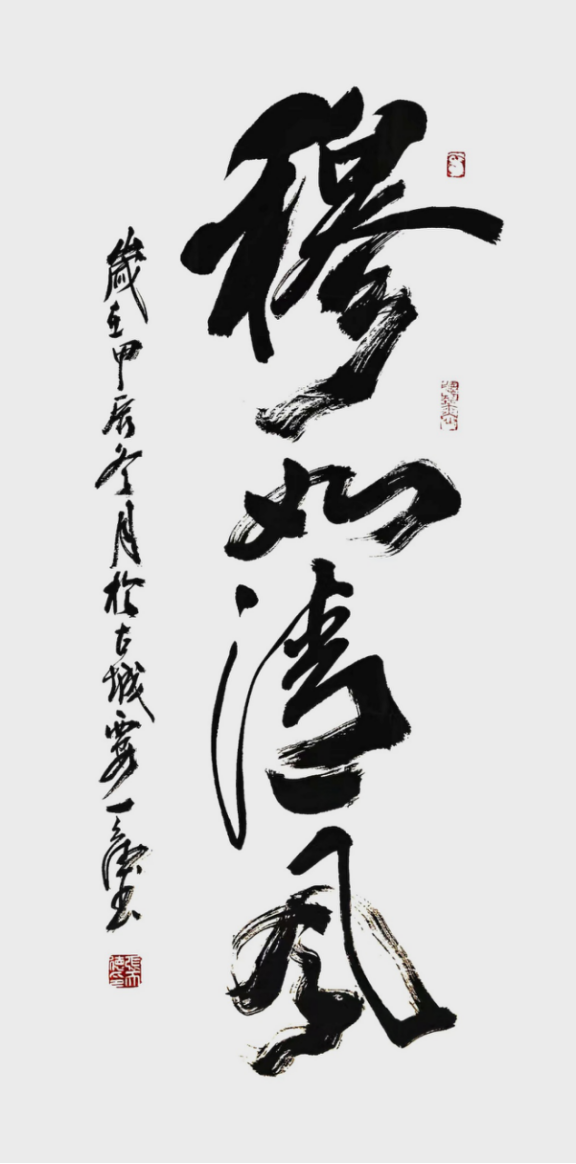 穆如清风
岁在甲辰冬月于古城 一 书